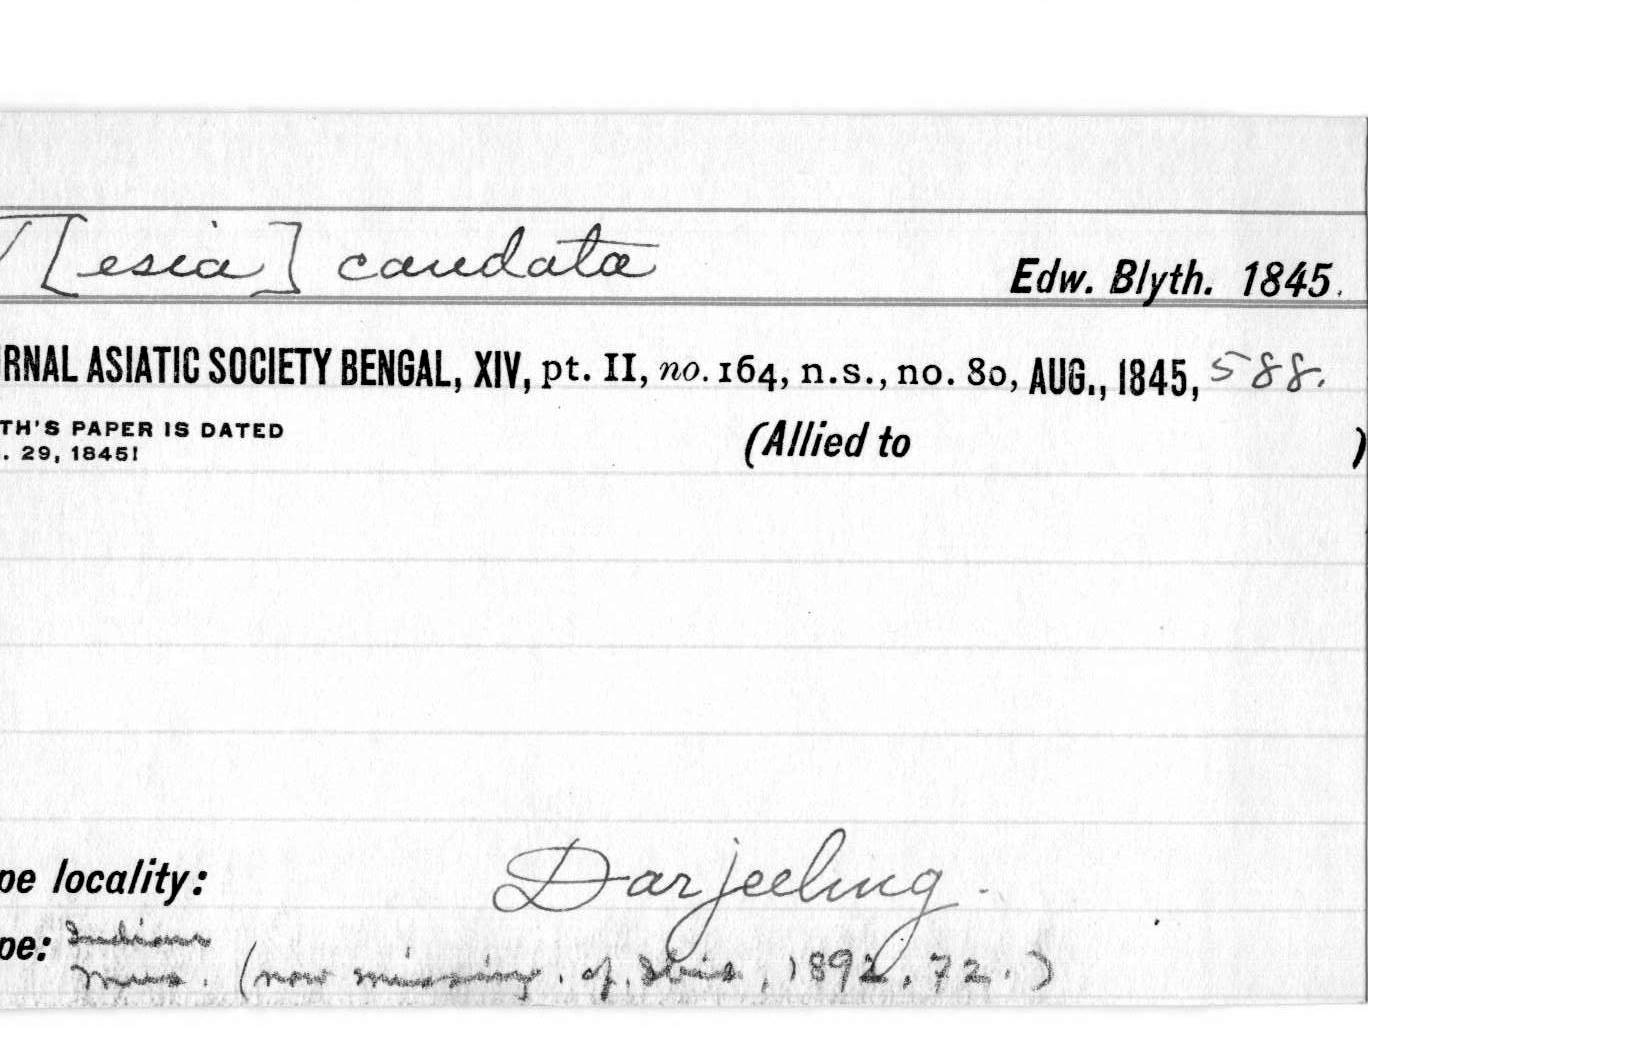 T[esia] caudata
Edw. Blyth. 1845.
RNAL ASIATIC SOCIETY BENGAL, XIV, pt. II, no. 164, n.s., no. 80, AUG., 1845, 588.
TH'S PAPER IS DATED
. 29, 1845!
(Allied to )
pe locality: Darjeeling.
pe: Indian
Mus. (now missing. cf. Ibis, 1892, 72.)